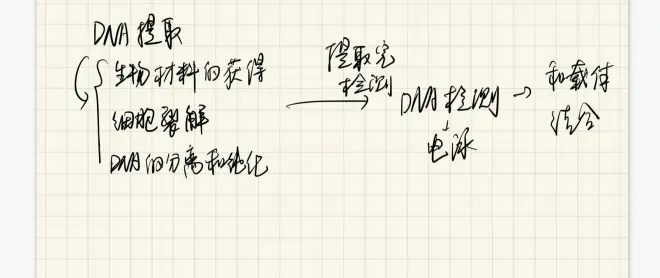 DNA提取
生物材料的获得
细胞裂解
DNA的分离和纯化
提取完
检测
DNA检测 → 和载体
结合
↓
电泳